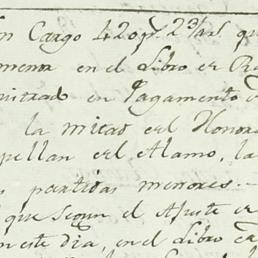 n Cargo 420 p.s 2 3/4 r.s qu
menor en el Libro er R
nistrado en Pagamento
la mitad erl Honora
pellan erl Alamo, la
s partidas menores..
que segun el Ajuste er
n este dia, en el Libro er